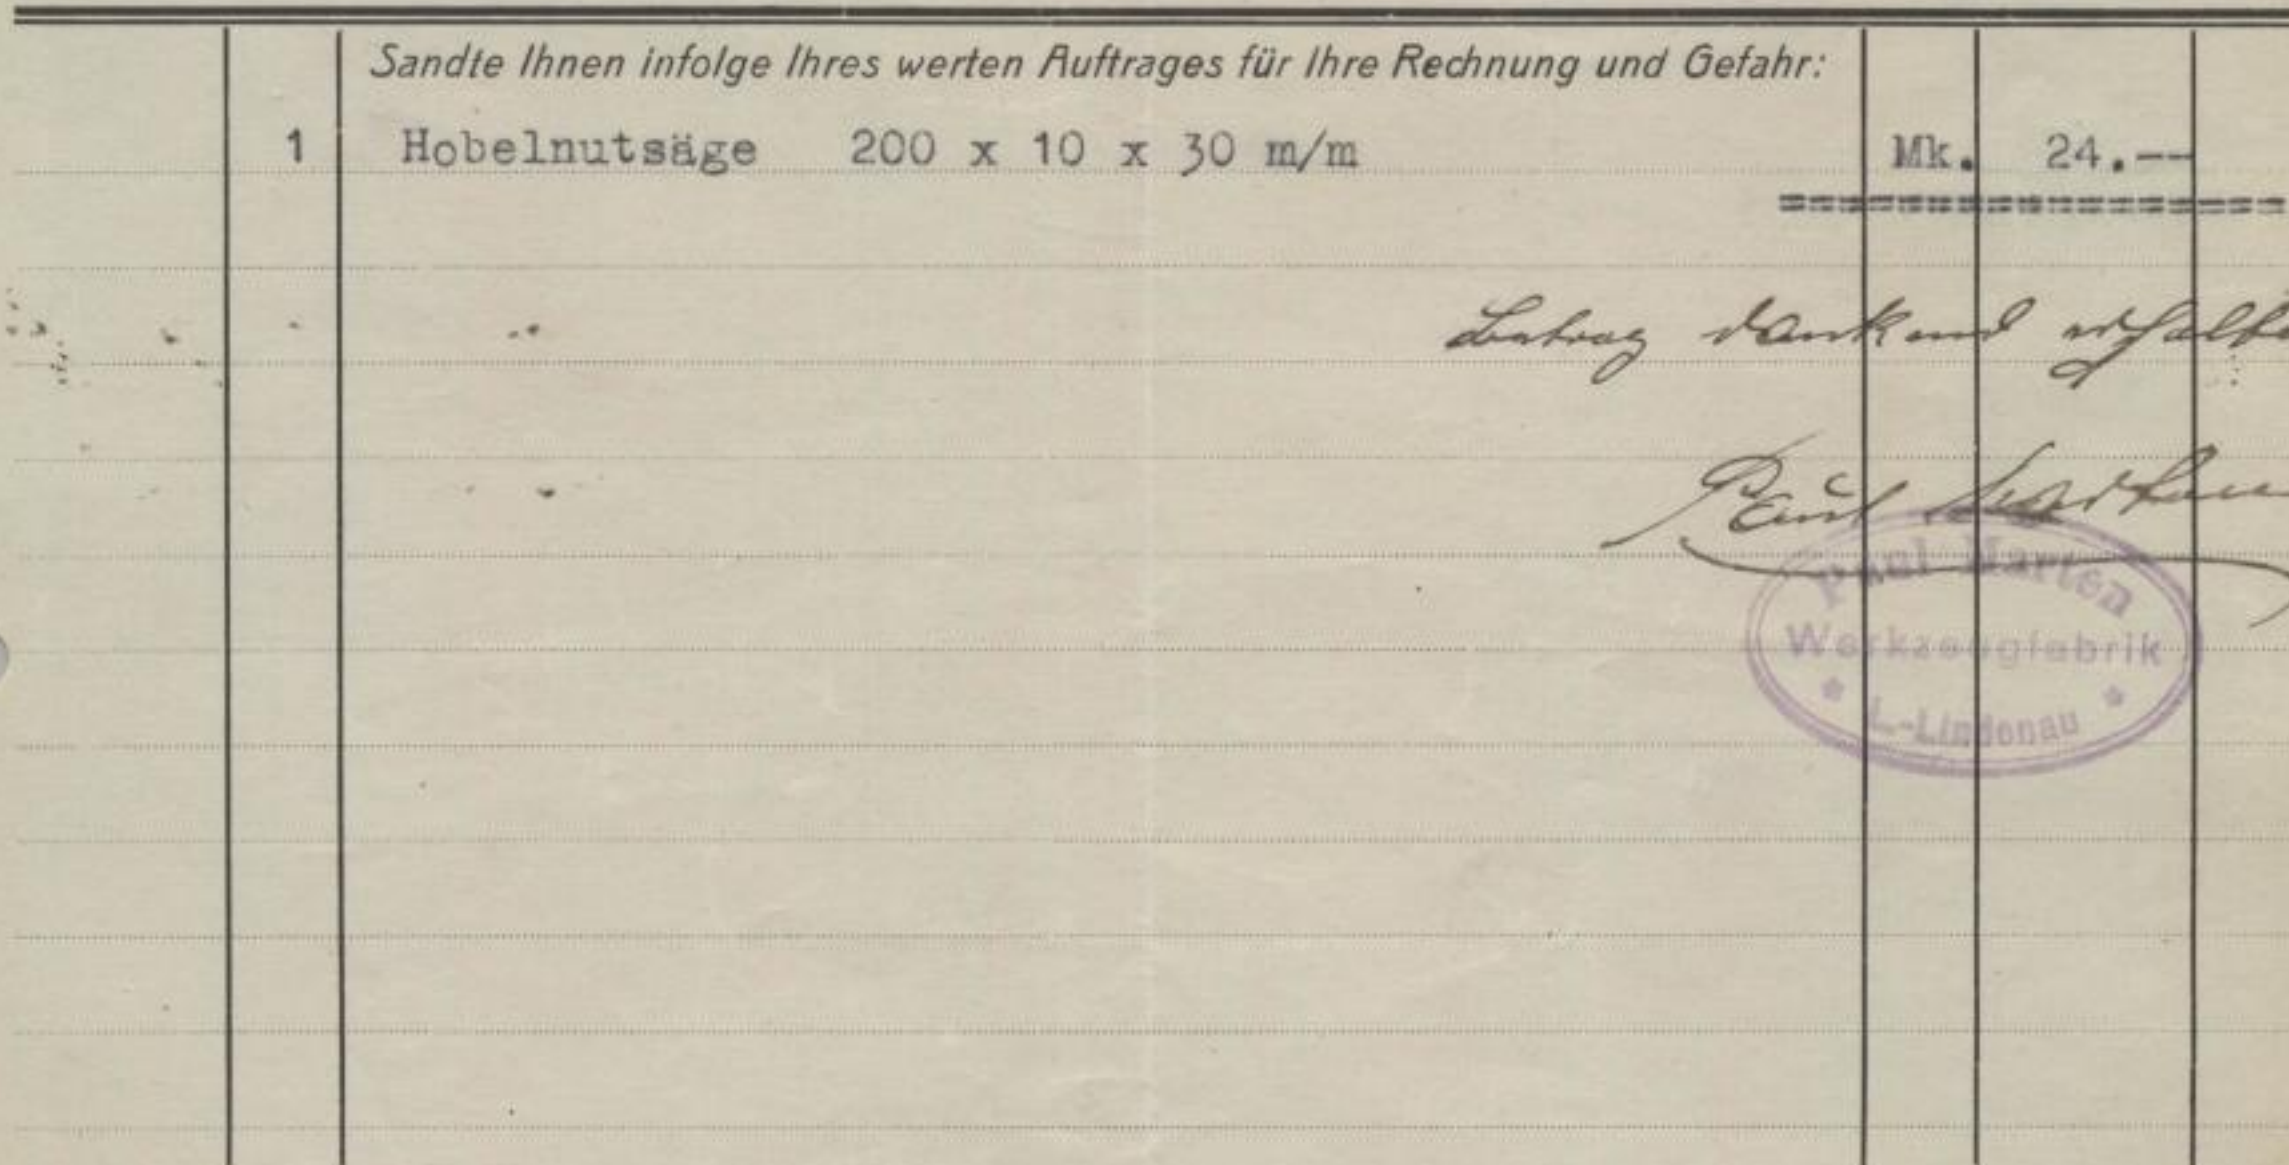 Sandte Ihnen infolge Ihres werten Auftrages für Ihre Rechnung und Gefahr:
1 Hobelnutsäge 200 x 10 x 30 m/m Mk. 24.--
==================
Betrag dankend erhalte
Paul
Paul Marten
Werkzeugfabrik
* L.-Lindenau *